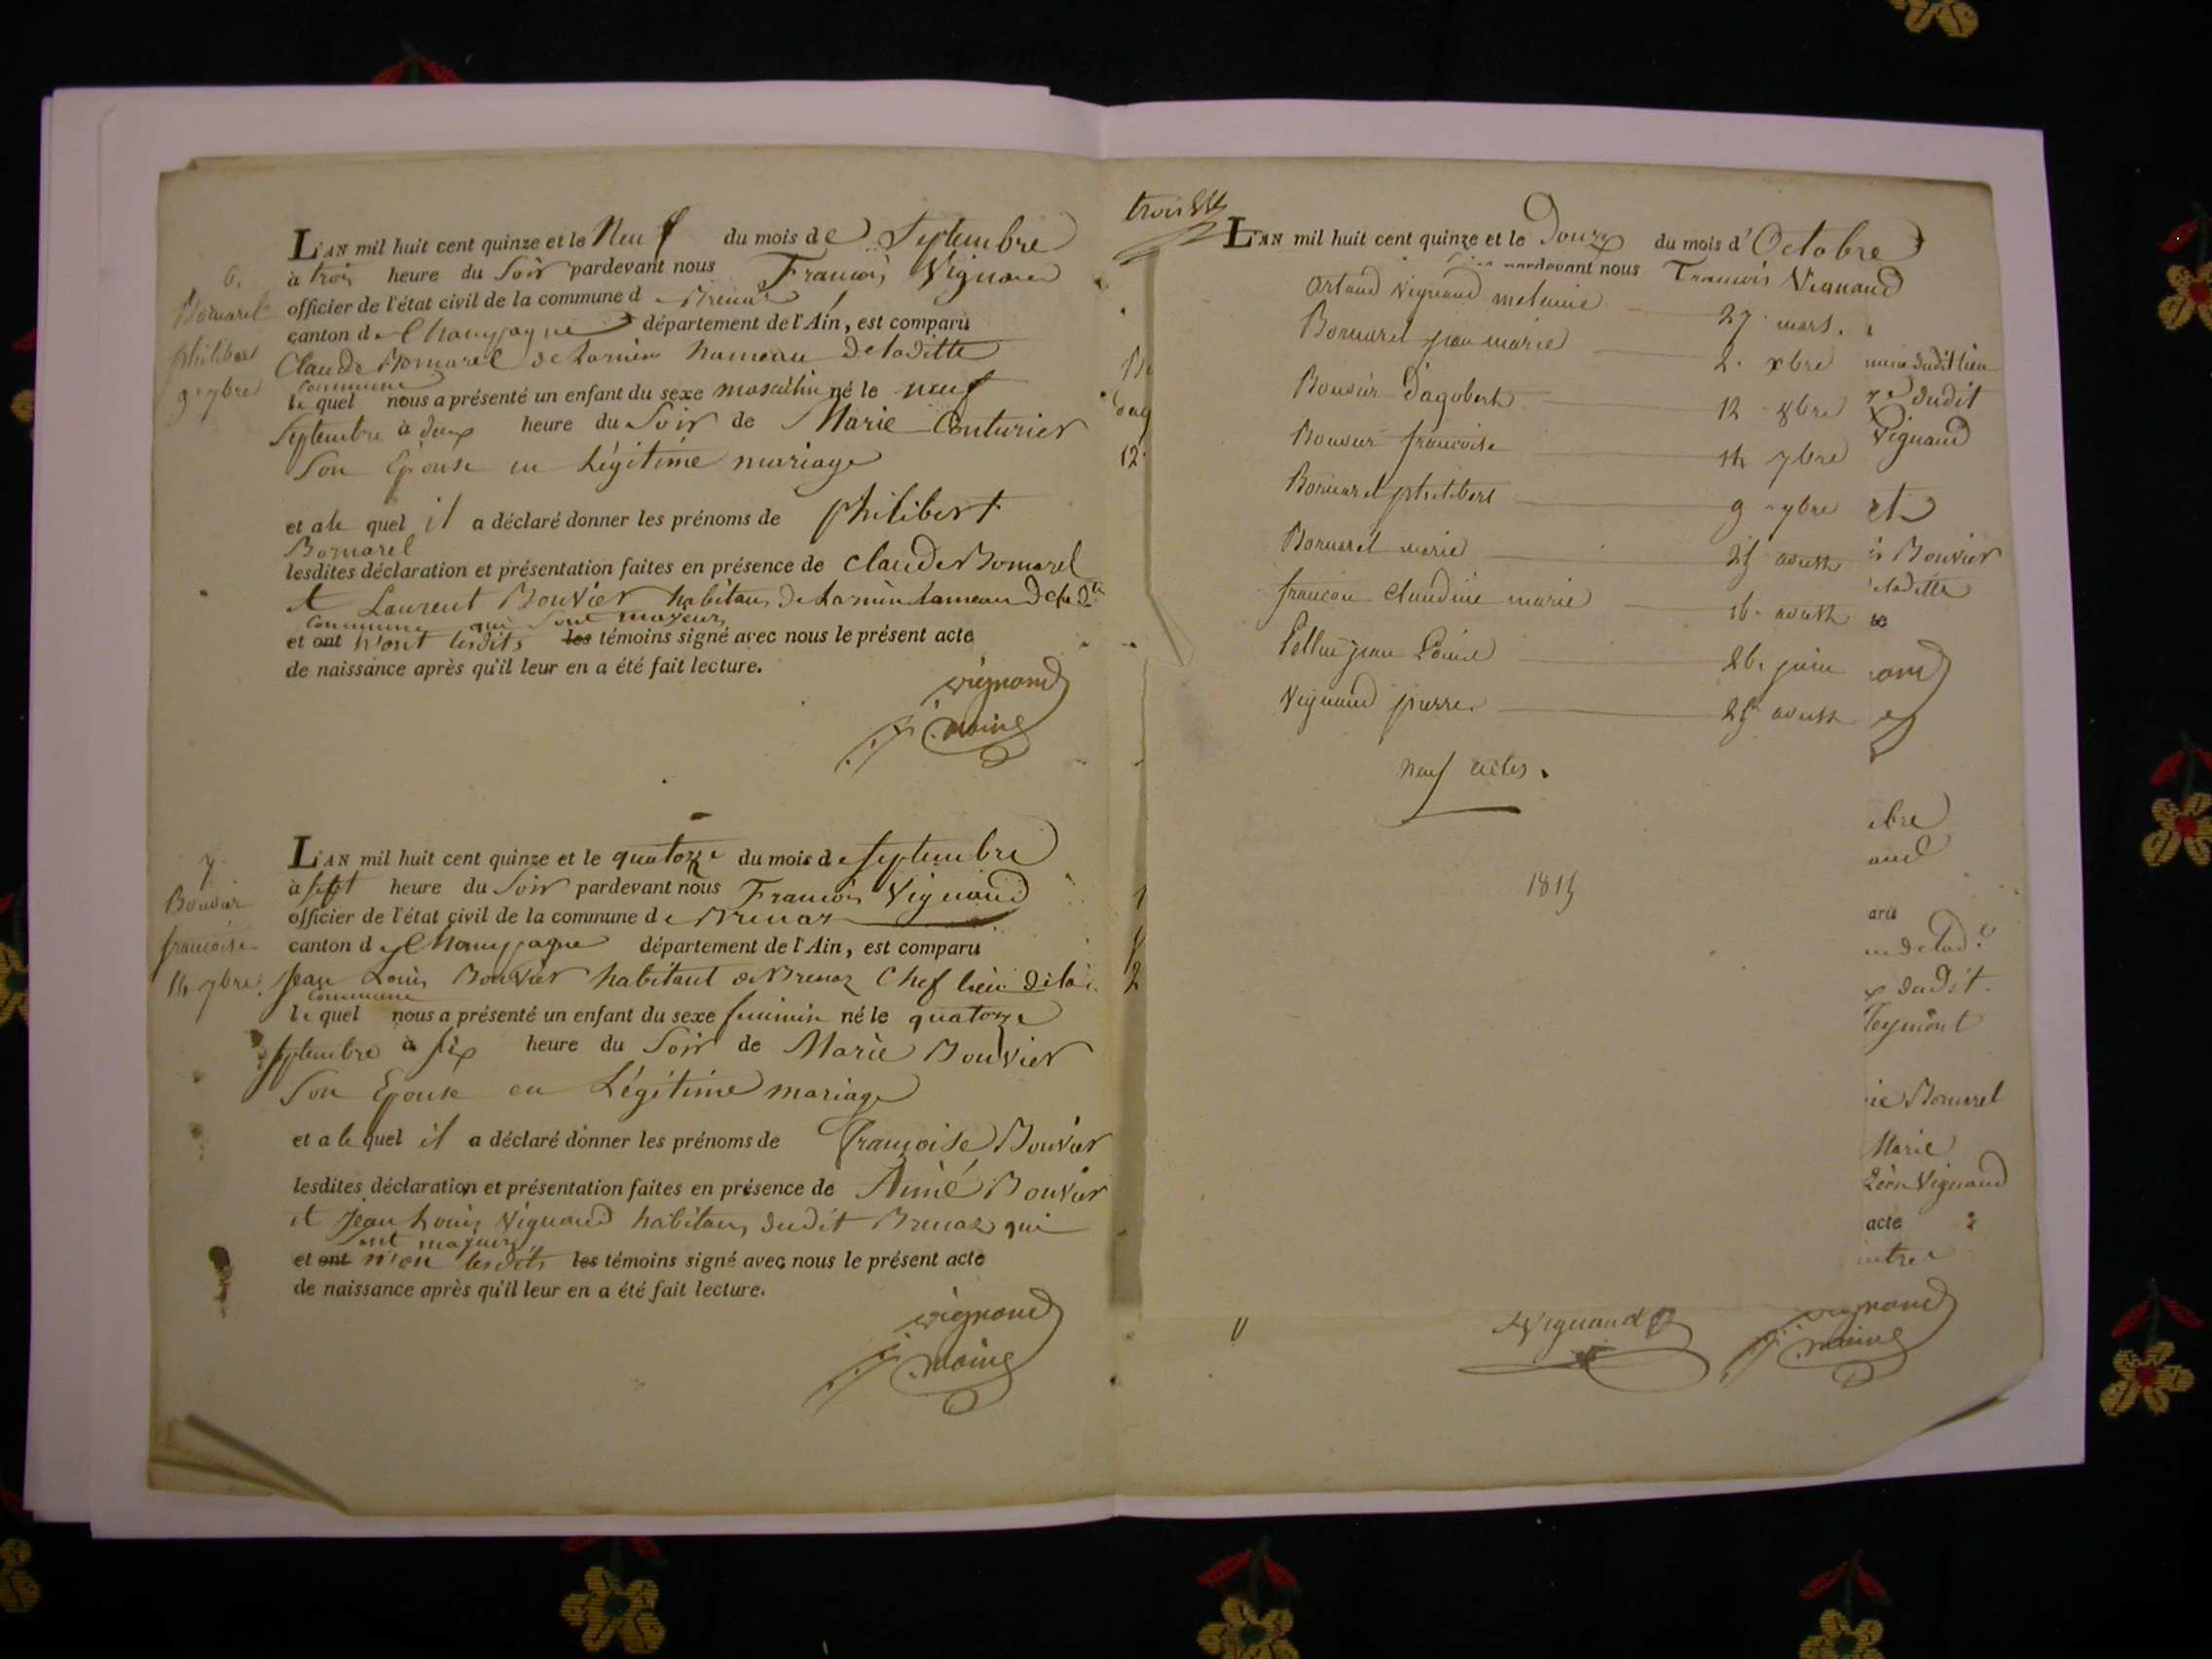 L'AN mil huit cent quinze et le Neuf du mois de Septembre
à trois heure du Soir pardevant nous François Vignaud
officier de l'état civil de la commune d Brenaz
canton de Champagne département de l'Ain, est comparu
Claude Bornarel hameau de laditte
commune
le quel nous a présenté un enfant du sexe masculin né le neuf
Septembre à deux heure du Soir de Marie Couturier
Son Epouse en Légitime mariage
et a le quel il a déclaré donner les prénoms de philibert
Bornarel
lesdites déclaration et présentation faites en présence de claude Bornarel
et Laurent Bouvier habitans hameau de la dte
commune qui Sont majeurs
et ont n'ont lesdits les témoins signé avec nous le présent acte
de naissance après qu'il leur en a été fait lecture.
vignaud
maire
6.
Bornarel
philibert
9. 7bre
L'AN mil huit cent quinze et le quatorze du mois de septembre
à sept heure du Soir pardevant nous François Vignaud
officier de l'état civil de la commune de Brenaz
canton de Champagne département de l'Ain, est comparu
Jean Louis Bouvier habitant de Brenaz Chef lieu de la
commune
le quel nous a présenté un enfant du sexe feminin né le quatorze
septembre à six heure du Soir de Marie Bouvier
Son Epouse en Légitime mariage
et a le quel il a déclaré donner les prénoms de Françoise Bouvier
lesdites déclaration et présentation faites en présence de Aimé Bouvier
et Jean Louis Vignaud habitans dudit Brenaz qui
sont majeurs
et ont n'on lesdits les témoins signé avec nous le présent acte
de naissance après qu'il leur en a été fait lecture.
vignaud
maire
7
Bouvier
françoise
14 7bre.
trois
L'AN mil huit cent quinze et le Douze du mois d'Octobre
pardevant nous François Vignaud
Artaud Vignaud melanie 27. mars.
Bornarel jean marie 2. xbre
Bouvier dagobert 12 8bre
Bouvier francoise 14 7bre
Bornarel philibert 9 7bre
Bornarel marie 25 aoust
francon claudine marie 16. aoust
jean Louis 26. juin
Vignaud pierre. 25 aoust
Neuf actes.
1815
dudit lieu
dudit
Vignaud
et
Bouvier
laditte
ebre
aud
aru
dudit.
Teymont
ie Bornarel
Marie
Vignaud
acte
Dag
12
Vignaud
vignaud
maire